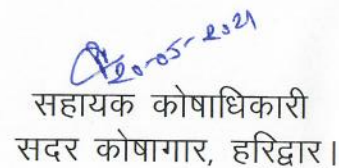 20-05-2021
सहायक कोषाधिकारी
सदर कोषागार, हरिद्वार।